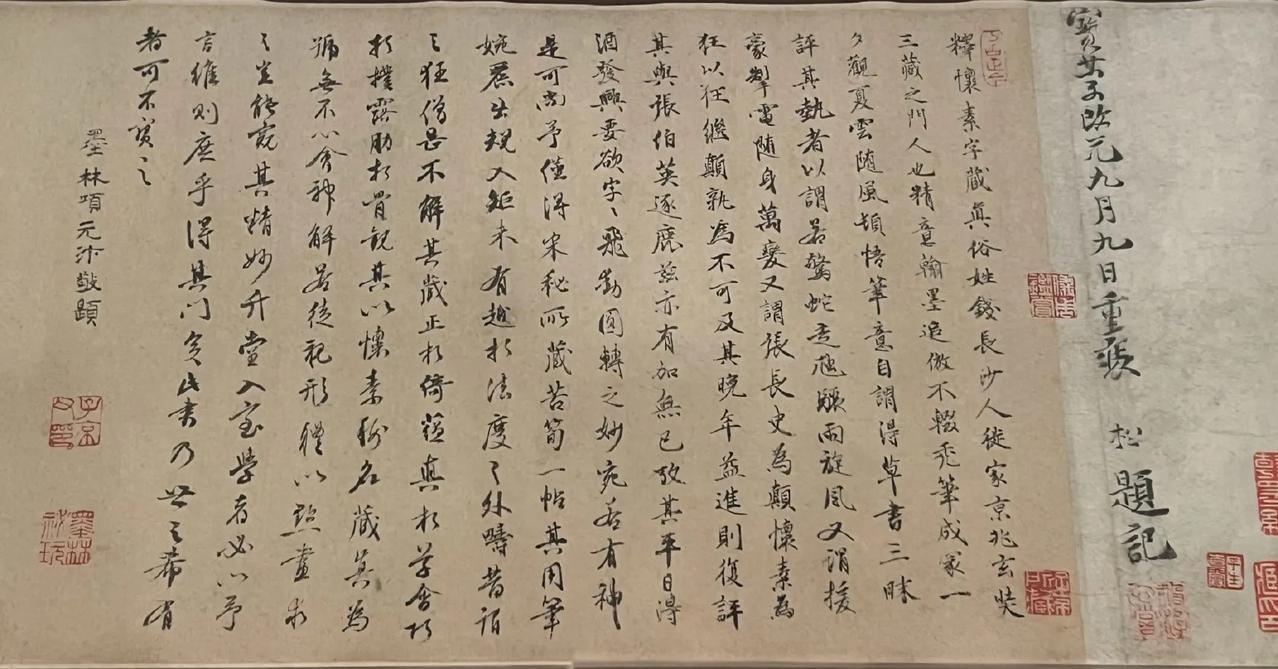 寶女子改元九月九日重裝 松題記
釋懷素字藏真俗姓錢長沙人徙家京兆玄奘
三藏之門人也精意翰墨追倣不輟禿筆成冢一
夕觀夏雲隨風頓悟筆意自謂得草書三昧
評其執者以謂若驚蛇走虺驟雨旋風又謂援
豪掣電隨身萬變又謂張長史為顛懷素為
狂以狂繼顛孰為不可及其晚年益進則復評
其與張伯英逐鹿茲亦有加無已故其平日得
酒發興要欲字字飛動圓轉之妙宛若有神
是可尚予僅得宋秘所藏苦筍一帖其用筆
婉麗出規入矩未有越於法度之外疇昔謂
之狂僧甚不解其藏正於倚蘊真於草會巧
於樸露肋於骨觀其以懷素稱名藏真為
號無不心會神解若徒視形體以點畫求
之豈能窺其精妙升堂入室學者必以予
言維則庶乎得其門矣此書乃世之希有
者可不寶之
墨林項元汴敬題
子京父印
墨林祕玩